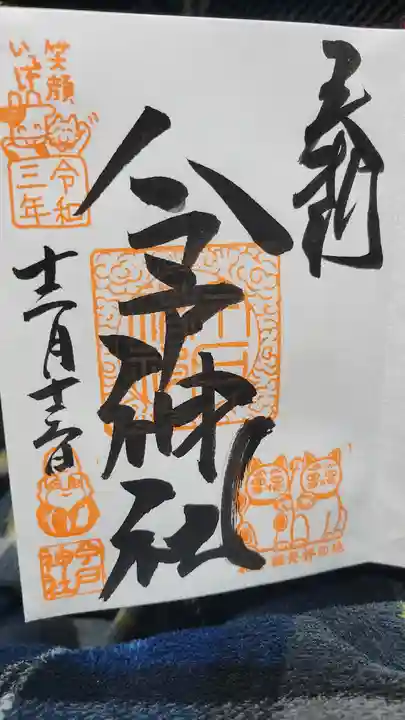 奉拝
今戸神社
笑顔
いっぱい
令和
三年
十二月
今戸
神社